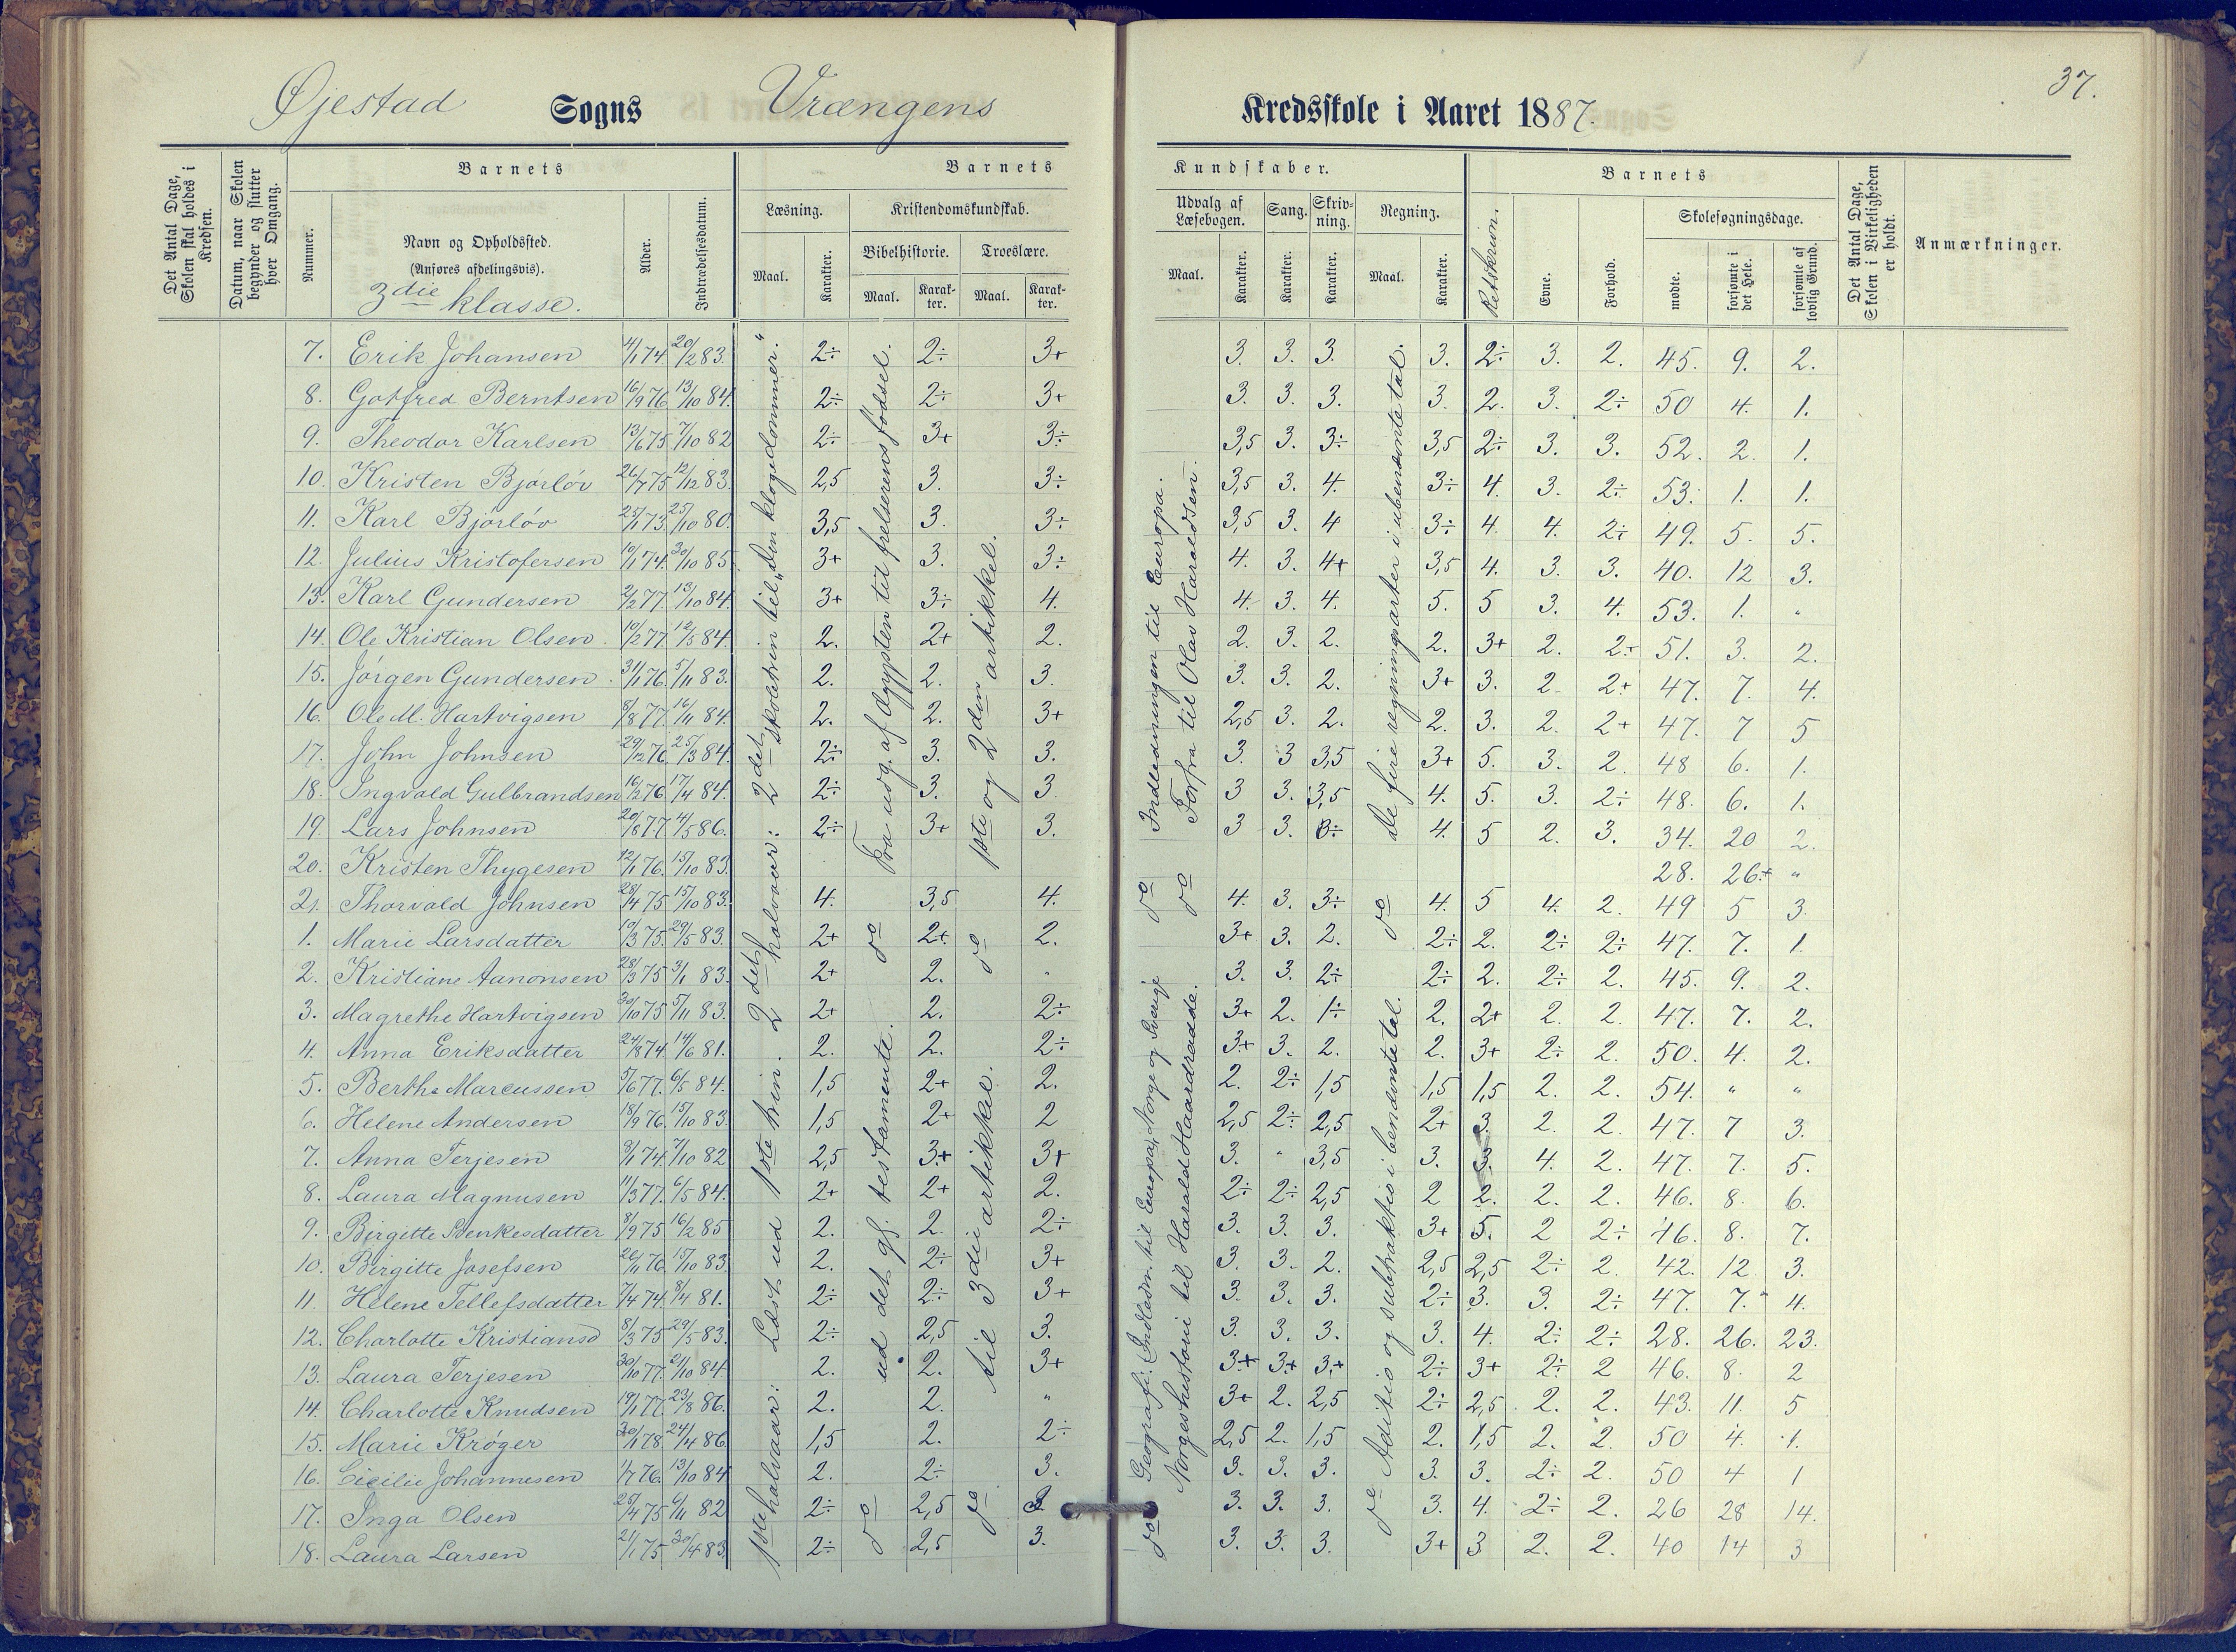 37.
Øjestad Sogns Vrængens Kredsskole i Aaret 1887.
Det Antal Dage, Skolen skal holdes i Kredsen.
Datum, naar Skolen begynder og slutter hver Omgang.
Barnets
Nummer.
Navn og Opholdssted.
(Anføres afdelingsvis).
3die klasse.
Alder.
Indtrædelsesdatum.
Barnets Kundskaber.
Læsning.
Maal.
Karakter.
Kristendomskundskab.
Bibelhistorie.
Maal.
Karakter.
Troeslære.
Maal.
Karakter.
Udvalg af Læsebogen.
Maal.
Karakter.
Sang.
Karakter.
Skrivning.
Karakter.
Regning.
Maal.
Karakter.
Retskrivn.
Barnets
Evne.
Forhold.
Skolesøgningsdage.
mødte.
forsømte i det Hele.
forsømte af lovlig Grund.
Det Antal Dage, Skolen i Virkeligheden er holdt.
Anmærkninger.
7. Erik Johansen 4/1 74. 20/2 83. 2÷ 2÷ 3+ 3. 3. 3. 3. 2÷ 3. 2. 45. 9. 2.
8. Gotfred Berntsen 16/9 76 13/10 84. 2÷ 2÷ 3+ 3. 3. 3. 3. 2. 3. 2÷ 50 4. 1.
9. Theodor Karlsen 13/6 75 7/10 82 2÷ 3+ 3÷ 3,5 3. 3÷ 3,5 2÷ 3. 3. 52. 2. 1.
10. Kristen Bjørløv 26/7 75 12/12 83. 2,5 3. 3÷ 3,5 3. 4. 3÷ 4. 3. 2÷ 53. 1. 1.
11. Karl Bjørløv 73. 25/10 80. 3,5 3. 3÷ 3,5 3. 4 3÷ 4. 4. 2÷ 49. 5. 5.
12. Julius Kristofersen 10/1 74. 30/10 85 3+ 3. 3÷ 4. 3. 4+ 3,5 4. 3. 3. 40. 12 3.
13. Karl Gundersen 2/2 77. 13/10 84. 3+ 3÷ 4. 4. 3. 4. 5. 5 3. 4. 53. 1. "
14. Ole Kristian Olsen. 10/2 77. 12/5 84. 2. 2+ 2. 2. 3. 2. 2. 3+ 2. 2÷ 51. 3. 2.
15. Jørgen Gundersen. 31/1 76. 5/11 83. 2. 2. 3. 3. 3. 2. 3+ 3. 2. 2+ 47. 7. 4.
16. Ole M. Hartvigsen 8/8 77. 16/11 84. 2. 2. 3+ 2,5 3. 2. 2. 3. 2. 2+ 47. 7 5
17. John Johnsen 29/12 76. 25/3 84. 2÷ 3. 3. 3. 3 3,5 3+ 5. 3. 2. 48 6. 1.
18. Ingvald Gulbrandsen 16/2 76. 17/4 84. 2÷ 3. 3. 3 3. 3,5 4. 5. 3. 2÷ 48. 6. 1.
19. Lars Johnsen 20/8 77 4/5 86. 2÷ 3+ 3. 3 3. 3÷ 4. 5 2. 3. 34. 20 2.
20. Kristen Thygesen 12/1 76. 15/10 83. 28. 26+ "
21. Thorvald Johnsen 28/4 75 15/10 83. 4. 3,5 4. 4. 3. 3÷ 4. 5 4. 2. 49 5 3.
1. Marie Larsdatter 10/3 75. 29/5 83. 2+ 2+ 2. 3+ 3. 2. 2÷ 2. 2÷ 2÷ 47. 7. 1.
2. Kristiane Aanonsen 28/3 75 3/1 83. 2+ 2. " 3. 3. 2÷ 2÷ 2. 2÷ 2. 45. 9. 2.
3. Magrethe Hartvigsen 30/10 75 5/11 83. 2+ 2. 2÷ 3+ 2. 1÷ 2. 2+ 2. 2. 47. 7. 2.
4. Anna Eriksdatter 24/8 74. 14/6 81. 2. 2. 2÷ 3+ 3. 2. 2. 3+ 2÷ 2. 50. 4. 2.
5. Berthe Marcussen 5/6 77. 6/5 84. 1,5 2+ 2. 2. 2÷ 1,5 1,5 1,5 2. 2. 54. " "
6. Helene Andersen 18/9 76. 15/10 83. 1,5 2+ 2 2,5 2÷ 2,5 2+ 3. 2. 2. 47. 7 3.
7. Anna Terjesen 8/1 74. 7/10 82 2,5 3+ 3+ 3. " 3,5 3. 3. 4. 2. 47. 7. 5.
8. Laura Magnusen 11/3 77. 6/5 84. 2+ 2+ 2. 2÷ 2÷ 2,5 2 2. 2. 2. 46. 8. 6.
9. Birgitte Svenkesdatter 8/9 75 16/2 85 2. 2. 2÷ 3. 3. 3. 3+ 5. 2 2÷ 46. 8. 7.
10. Birgitte Josefsen 20/11 76. 15/10 83. 2. 2÷ 3+ 3. 3. 2. 2,5 2,5 2÷ 2. 42. 12 3.
11. Helene Tellefsdatter 7/4 74. 8/4 81. 2÷ 2÷ 3+ 3. 3. 3. 2÷ 3. 3. 2÷ 47. 7. 4.
12. Charlotte Kristiansd 8/3 75 29/5 83. 2÷ 2,5 3. 3. 3. 3. 3. 4. 2÷ 2÷ 28. 26. 23.
13. Laura Terjesen 30/10 77. 2/10 84. 2. 2. 3+ 3+ 3+ 3+ 2÷ 3+ 2÷ 2 46. 8. 2
14. Charlotte Knudsen 19/1 77 23/8 86. 2. 2. " 3+ 2. 2,5 2÷ 2,5 2. 2. 43. 11. 5
15. Marie Krøger 30/1 78. 24/4 86. 1,5 2. 2÷ 2,5 2. 1,5 2. 1,5 2. 2. 50 4. 1.
16. Cicilie Johannesen 1/7 76. 13/10 84 2. 2÷ 3. 3. 3. 3. 3. 3. 2÷ 2. 50 4 1
17. Inga Olsen 25/4 75 6/11 82 2÷ 2,5 3. 3. 3. 3. 3. 4. 2÷ 2. 26 28 14.
18. Laura Larsen 2/1 75 30/4 83. 2÷ 2,5 3. 3. 3. 3. 3+ 3 2. 2. 40 14 3
1ste halvaar: Læst ud 1ste trin. 2det halvaar: 2det skoletrin til „Den kloge dommer."
Fra udg. af Ægypten til frelserens fødsel.
do ud det gl. testamente.
do
1ste og 2den artikkel.
do til 3die artikkel.
do
Indledningen til Europa.
Forfra til Olav Haraldsen.
do do
Geografi: Indledn. til Europa, Norge og Sverige
Norgeshistorie til Harald Haardraade.
do
De fire regningsarter i ubenævnte tal.
do
Aditio og subtraktio i benævnte tal.
do